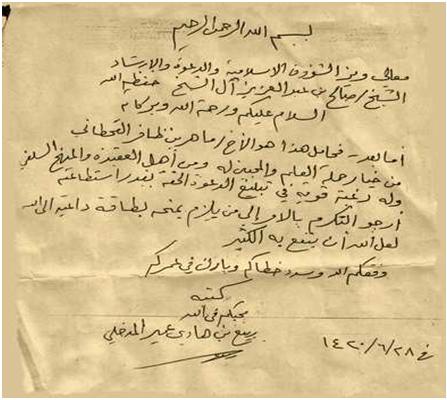 بسم الله الرحمن الرحيم
معالي وزير الشؤون الاسلامية والدعوة والإرشاد
الشيخ / صالح بن عبد العزيز آل الشيخ حفظه الله
السلام عليكم ورحمة الله وبركاته
أما بعد - فحامل هذا هو الأخ / ماهر بن ظافر القحطاني
من خيار حملة العلم والمحبين له ومن أهل العقيدة والمنهج السلفي
وله رغبة قوية في تبليغ الدعوة الحقة بقدر استطاعته
أرجو التكرم بالأمر إلى من يلزم بمنحه بطاقة داعية إلى الله
لعل الله أن ينفع به الكثير
وفقكم الله وسدد خطاكم وبارك في عمركم
كتبه
محبكم في الله
ربيع بن هادي عمير المدخلي
في ١٤٢٠/٦/٢٨